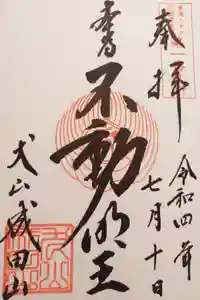 奉拝
令和四年
七月十日
不動明王
犬山成田山